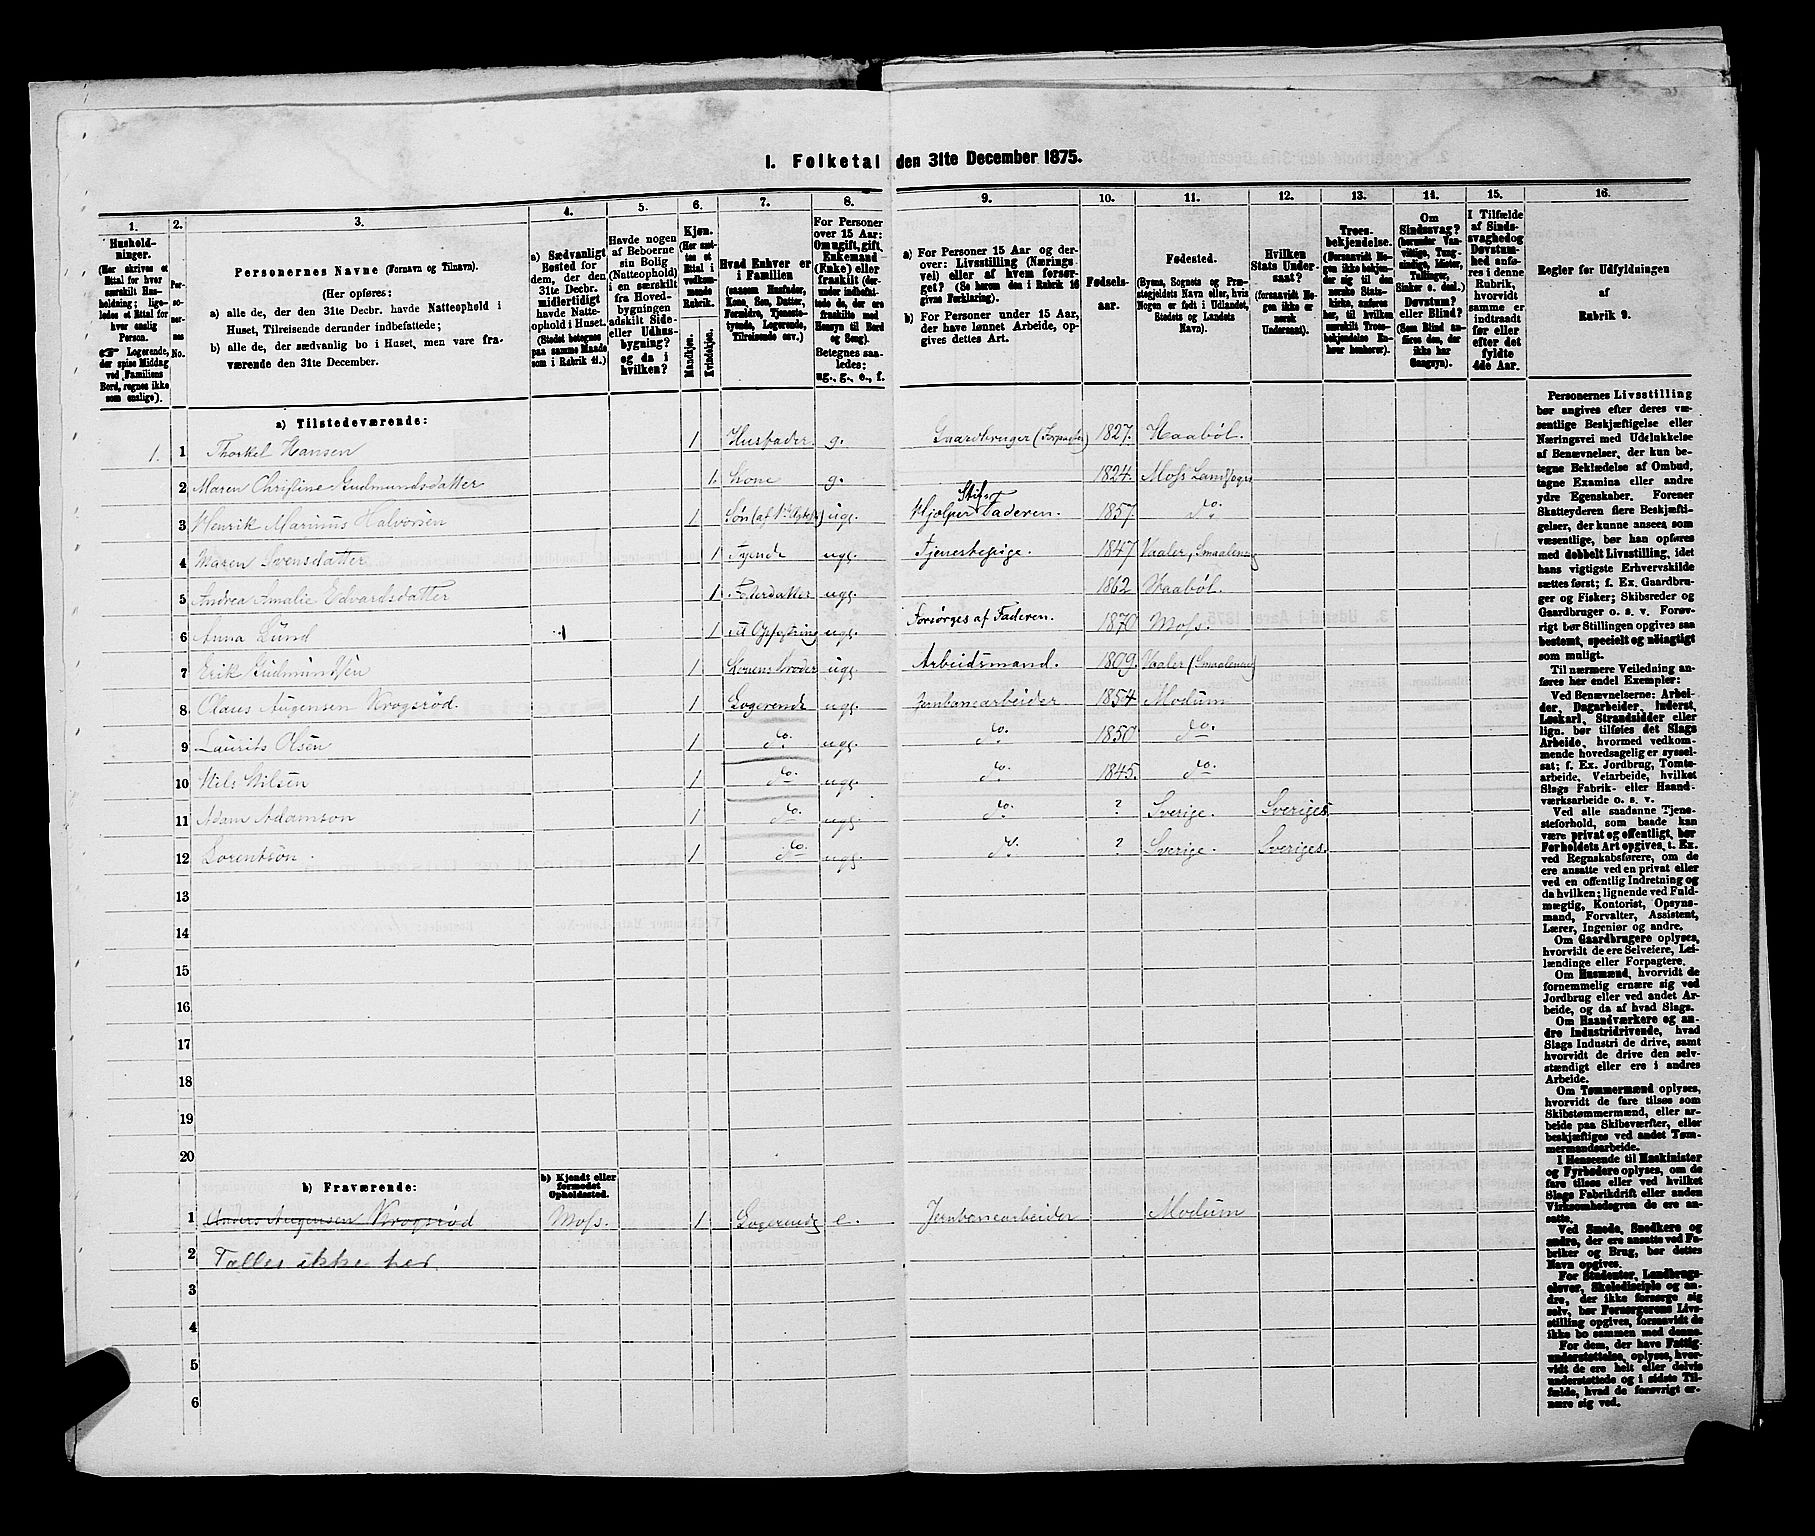 1. Folketal den 31te December 1875.
1. 2. 3. 4. 5. 6. 7. 8. 9. 10. 11. 12. 13. 14. 15. 16.
Hushold-
ninger.
(Her skrives et
Ettal for hver
særskilt Hus-
holdning; lige-
ledes et Ettal for
hver enslig
Person.
☞ Logerende,
der spise Middag
ved Familiens
Bord, regnes ikke
som enslige).
Per-
so-
ner-
nes
No.
Personernes Navne (Fornavn og Tilnavn).
(Her opføres:
a) alle de, der den 31te Decbr. havde Natteophold i
Huset, Tilreisende derunder indbefattede;
b) alle de, der sædvanlig bo i Huset, men vare fra-
værende den 31te December.
a) Sædvanligt
Bosted for
dem, der den
31te Decbr.
midlertidigt
havde Natte-
ophold i Huset.
(Stedet betegnes
paa samme Maade
som i Rubrik 11.)
Havde nogen
af Beboerne
sin Bolig
(Natteophold)
i en særskilt
fra Hoved-
bygningen
adskilt Side-
eller Udhus-
bygning?
og da i
hvilken?
Kjøn.
(Her sæt-
tes et
Ettal i
vedkom-
mende
Rubrik.
Mandkjøn.
Kvindekjøn.
Hvad Enhver er
i Familien
(saasom Husfader,
Kone, Søn, Datter,
Forældre, Tjeneste-
tyende, Logerende,
Tilreisende osv.)
For Personer
over 15 Aar:
Om ugift, gift,
Enkemand
(Enke) eller
fraskilt (der-
under indbefat-
tede de, der ere
fraskilte med
Hensyn til Bord
og Seng).
Betegnes saa-
ledes:
ug., g., e., f.
a) For Personer 15 Aar og der-
over: Livsstilling (Nærings-
vei) eller af hvem forsør-
get? (Se herom den i Rubrik 16
gives Forklaring).
b) For Personer under 15 Aar,
der have lønnet Arbeide, op-
gives dettes Art.
Fødsels-
aar.
Fødested.
(Byens, Sognets og Præ-
stegjeldets Navn eller, hvis
Nogen er født i Udlandet,
Stedets og Landets
Navn).
Hvilken
Stats Under-
saat?
(forsaavidt No-
gen ikke er
norsk
Undersaat).
Troes-
bekjendelse.
(Forsaavidt No-
gen ikke bekjen-
der sig til den
norske Stats-
kirke, anføres
her, til hvilken
særskilt Troes-
bekjendelse En-
hver henhører).
Om
Sindssvag?
(herunder Van-
vittige, Tung-
sindige, Idioter,
Tullinger,
Sinker o. desl.)
Døvstum?
eller Blind?
(Som Blind an-
føres den, der
ikke har
Gangsyn).
I Tilfælde
af Sinds-
svaghed og
Døvstum-
hed anfø-
res i denne
Rubrik,
hvorvidt
samme er
indtraadt
før eller
efter det
fyldte
4de Aar.
Regler for Udfyldningen
af
Rubrik 9.
a) Tilstedeværende:
1. 1 Thorkel Hansen 1 Husfader. g. Gaardbruger (Forpagter) 1827. Haabøl.
2 Maren Christine Gudmundsdatter 1. Kone g. 1824. Moss Landsogn
3 Henrik Marinus Halvorsen 1 Søn (af ug. Hjælper Stiffaderen. 1857. do.
4 Maren Svensdatter 1 Tyende ug. Tjenestepige. 1847 Vaaler, Smaalenene
5 Andrea Amalie Edvardsdatter 1 ug. 1862 Haabøl.
6 Anna Lund 1 til Opfostring ug. Forsørges af Faderen. 1870 Moss.
7 Erik Gudmundsen 1 Konens broder ug. Arbeidsmand. 1809. Vaaler (Smaalenene)
8 Olaus Augensen Krogsrød. 1 Logerende ug. Jernbanearbeider 1854. Modum
9 Laurits Olsen 1 do. ug. do. 1850 do.
10 Nils Nilsen 1 do. ug. do. 1845. do.
11 Adam Adamson 1 do. ug. do. ? Sverige. Sveriges.
12 Lorentson. 1 do. ug. do. ? Sverige. Sveriges.
13
14
15
16
17
18
19
20
b) Fraværende: b) Kjendt eller
formodet
Opholdssted.
1 Anders Augensen Krogsrød Moss. 1 Logerende e. Jernbanearbeider Modum
2 Tælles ikke her.
3
4
5
6
Personernes Livsstilling
bør angives efter deres væ-
sentlige Beskjæftigelse eller
Næringsvei med Udelukkelse
af Benævnelser, der kun be-
tegne Beklædelse af Ombud,
tagne Examina eller andre
ydre Egenskaber. Forener
Skatteyderen flere Beskjæfti-
gelser, der kunne ansees som
væsentlige, bør han opføres
med dobbelt Livsstilling, idet
hans vigtigste Erhvervskilde
sættes først; f. Ex. Gaardbru-
ger og Fisker; Skibsreder og
Gaardbruger o. s. v. Forøv-
rigt bør Stillingen opgives saa
bestemt, specielt og nøiagtigt
som muligt.
Til nærmere Veiledning an-
føres her endel Exempler:
Ved Benævnelserne: Arbei-
der, Dagarbeider, Inderst,
Løskarl, Strandsidder eller
lign. bør tilføies det Slags
Arbeide, hvormed vedkom-
mende hovedsagelig er syssel-
sat; f. Ex. Jordbrug, Tomte-
arbeide, Veiarbeide, hvilket
Slags Fabrik- eller Haand-
værksarbeide o. s. v.
Ved alle saadanne Tjene-
steforhold, som baade kan
være privat og offentligt, bør
Forholdets Art opgives, t. Ex.
ved Regnskabsførere, om de
ere ansatte ved en privat eller
ved en offentlig Indretning og
da hvilken; lignende ved Fuld-
mægtig, Kontorist, Opsyns-
mand, Forvalter, Assistent,
Lærer, Ingeniør og andre.
Om Gaardbrugere oplyses,
hvorvidt de ere Selveiere, Lei-
lændinge eller Forpagtere.
Om Husmænd, hvorvidt de
fornemmelig ernære sig ved
Jordbrug eller ved andet Ar-
beide, og da af hvad Slags.
Om Haandværkere og an-
dre Industridrivende, hvad
Slags Industri de drive, samt
hvorvidt de drive den selv-
stændigt eller ere i andres
Arbeide.
Om Tømmermænd oplyses,
hvorvidt de fare tilsøs som
Skibstømmermænd, eller ar-
beide paa Skibsværfter, eller
beskjæftiges ved andet Tøm-
mermandsarbeide.
I Henseende til Maskinister
og Fyrbødere oplyses, om de
fare tilsøs eller ved hvilket
Slags Fabrikdrift eller anden
Virksomhedsgren de ere an-
satte.
Ved Smede, Snedkere og
andre, der ere ansatte ved Fa-
briker og Brug, bør dettes
Navn opgives.
For Studenter, Landbrugs-
elever, Skoledisciple og an-
dre, der ikke forsørge sig
selv, bør Forsørgerens Livs-
stilling opgives, forsaavidt de
ikke bo sammen med denne.
For dem, der have Fattig-
understøttelse, oplyses, hvor-
vidt de ere helt eller delvis
understøttede og i sidste Til-
fælde, hvad de forøvrigt er-
nære sig ved.